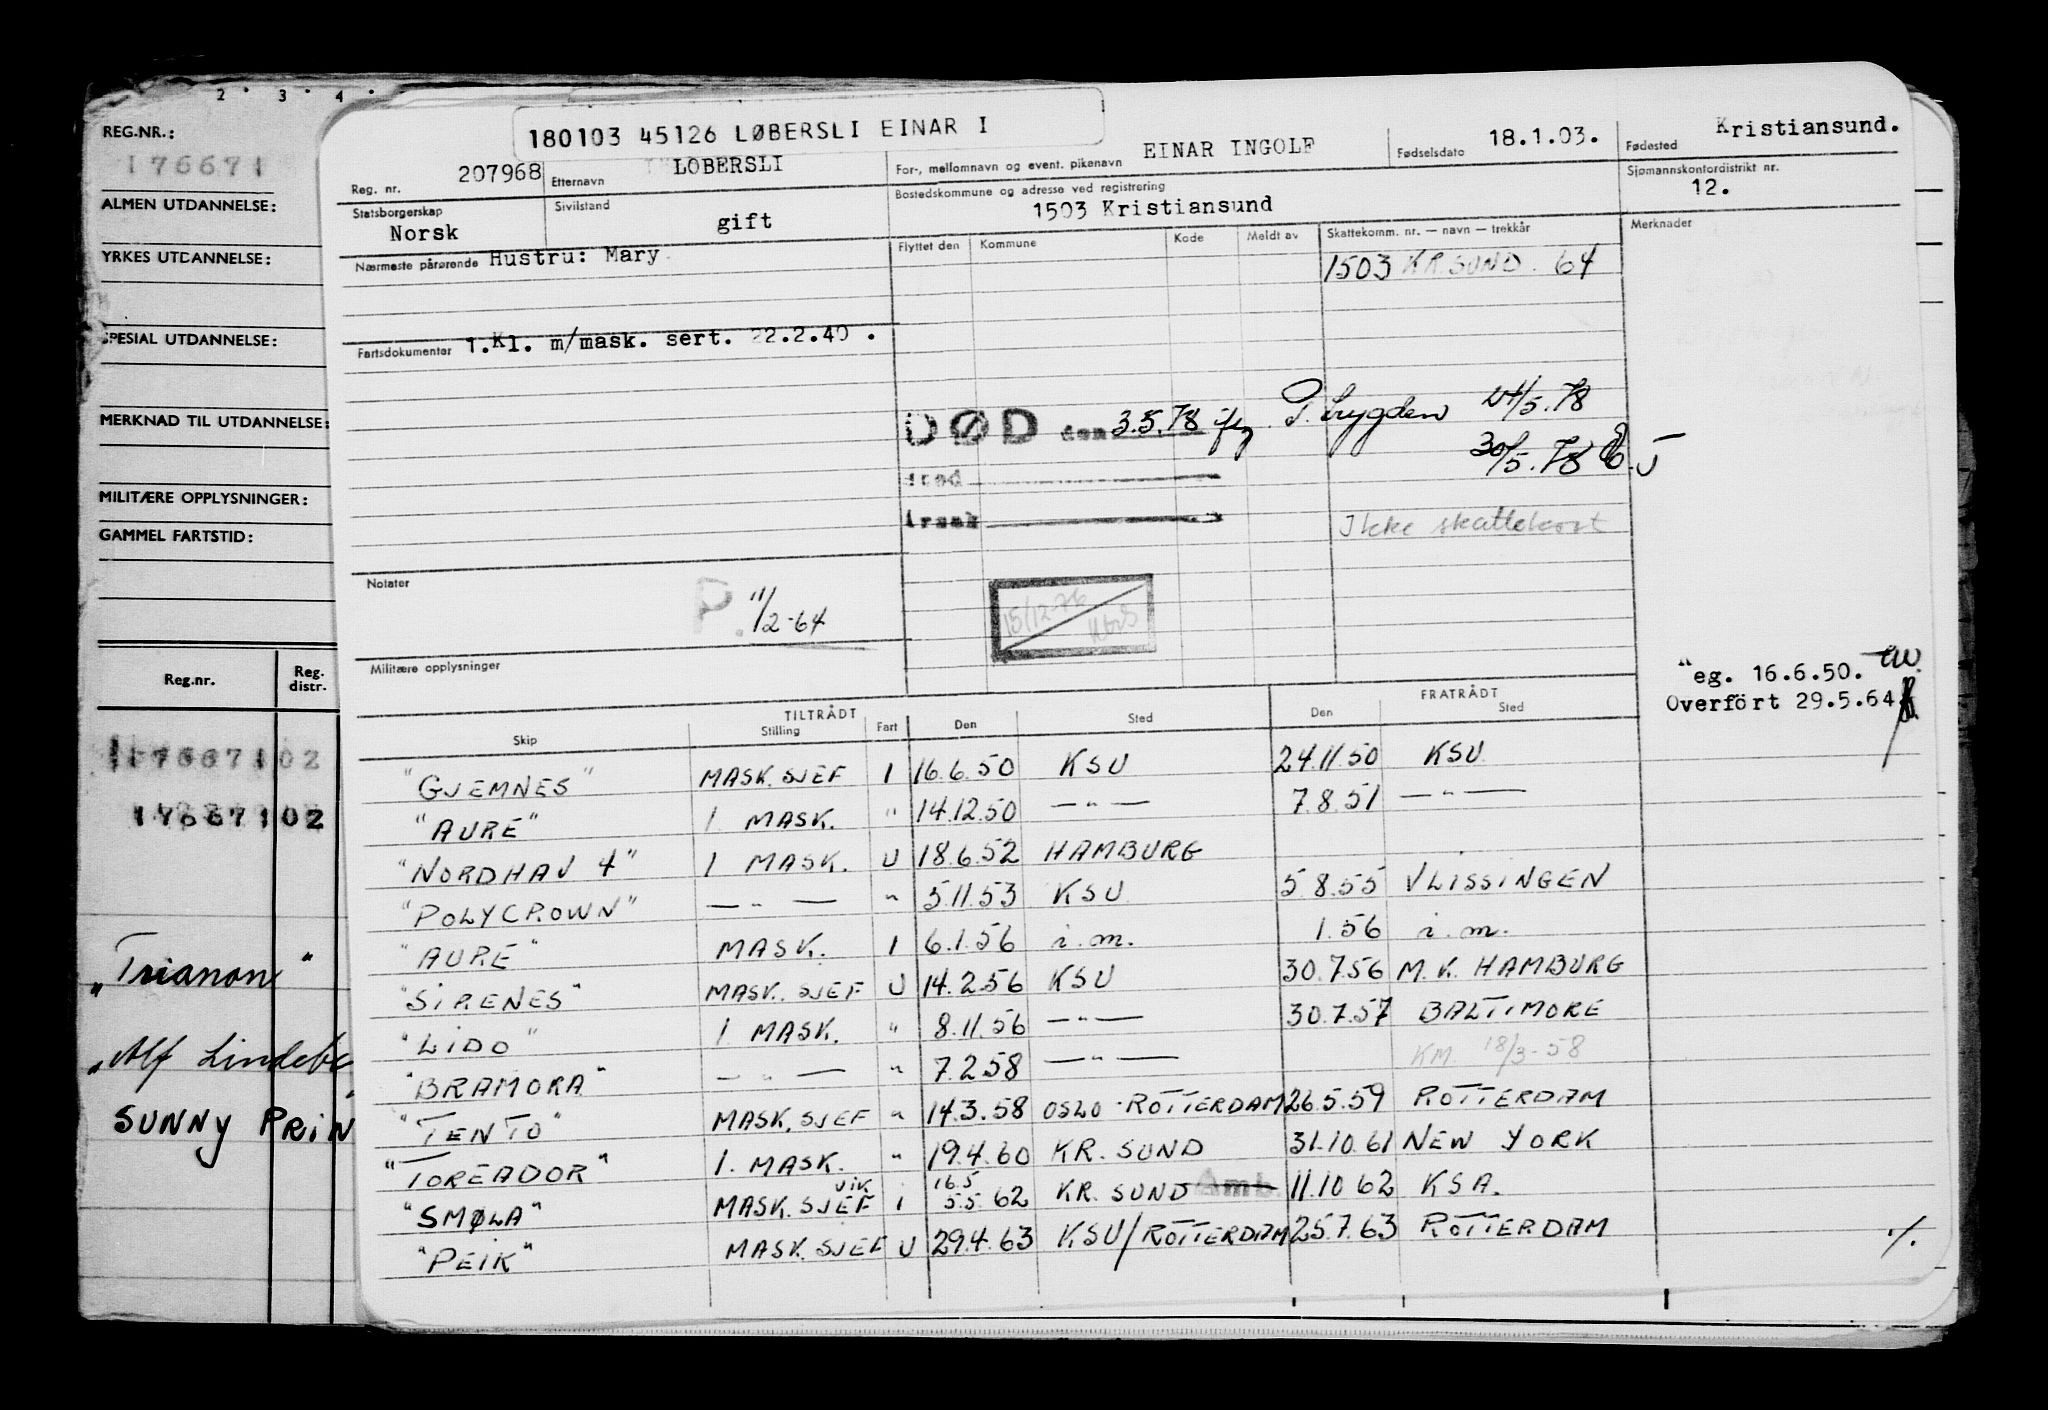 2 · 3 · 4 ·
REG.NR.:
176671
ALMEN UTDANNELSE:
YRKES UTDANNELSE:
SPESIAL UTDANNELSE:
MERKNAD TIL UTDANNELSE:
MILITÆRE OPPLYSNINGER:
GAMMEL FARTSTID:
Reg.nr. Reg. distr.
17667102
17667102
"Trianon"
"Alf Lindebe
SUNNY PRIN
180103 45126 LØBERSLI EINAR I
Reg. nr. 207968 Etternavn LØBERSLI For-, mellomnavn og event. pikenavn EINAR INGOLF Fødselsdato 18.1.03. Fødested Kristiansund.
Statsborgerskap Norsk Sivilstand gift Bostedskommune og adresse ved registrering 1503 Kristiansund Sjømannskontordistrikt nr. 12.
Nærmeste pårørende Hustru: Mary Flyttet den Kommune Kode Meldt av Skattekomm. nr. — navn — trekkår Merknader
1503 KR.SUND. 64
Fartsdokumenter 1.Kl. m/mask. sert. 22.2.40.
DØD den 3.5.78 T. trygden 24/5.78
30/5.78
sted
årsak
Ikke skattekort
Notater P. 11/2-64
15/12-76
Militære opplysninger
Reg. 16.6.50.
Overfört 29.5.64
TILTRÅDT FRATRÅDT
Skip Stilling Fart Den Sted Den Sted
"GJEMNES" MASK.SJEF I 16.6.50 KSU 24.11.50 KSU
"AURE" 1. MASK. " 14.12.50 — " — 7.8.51 — " —
"NORDHAV 4" 1 MASK. U 18.6.52 HAMBURG
"POLYCROWN" — " — " 5.11.53 KSU 5.8.55 VLISSINGEN
"AURE" MASK. I 6.1.56 i.m. 1.56 i.m.
"SIRENES" MASK.SJEF U 14.2.56 KSU 30.7.56 M.K. HAMBURG
"LIDO" 1. MASK. " 8.11.56 — " — 30.7.57 BALTIMORE
"BRAMORA" — " — " 7.2.58 — " — KM. 18/3-58
"TENTO" MASK.SJEF " 14.3.58 OSLO - ROTTERDAM 26.5.59 ROTTERDAM
"TOREADOR" 1. MASK. " 19.4.60 KR.SUND 31.10.61 NEW YORK
"SMØLA" MASK.SJEF VIK I 16.5 5.5.62 KR.SUND Amb. 11.10.62 KSA.
"PEIK" MASK.SJEF U 29.4.63 KSU/ROTTERDAM 25.7.63 ROTTERDAM ./.